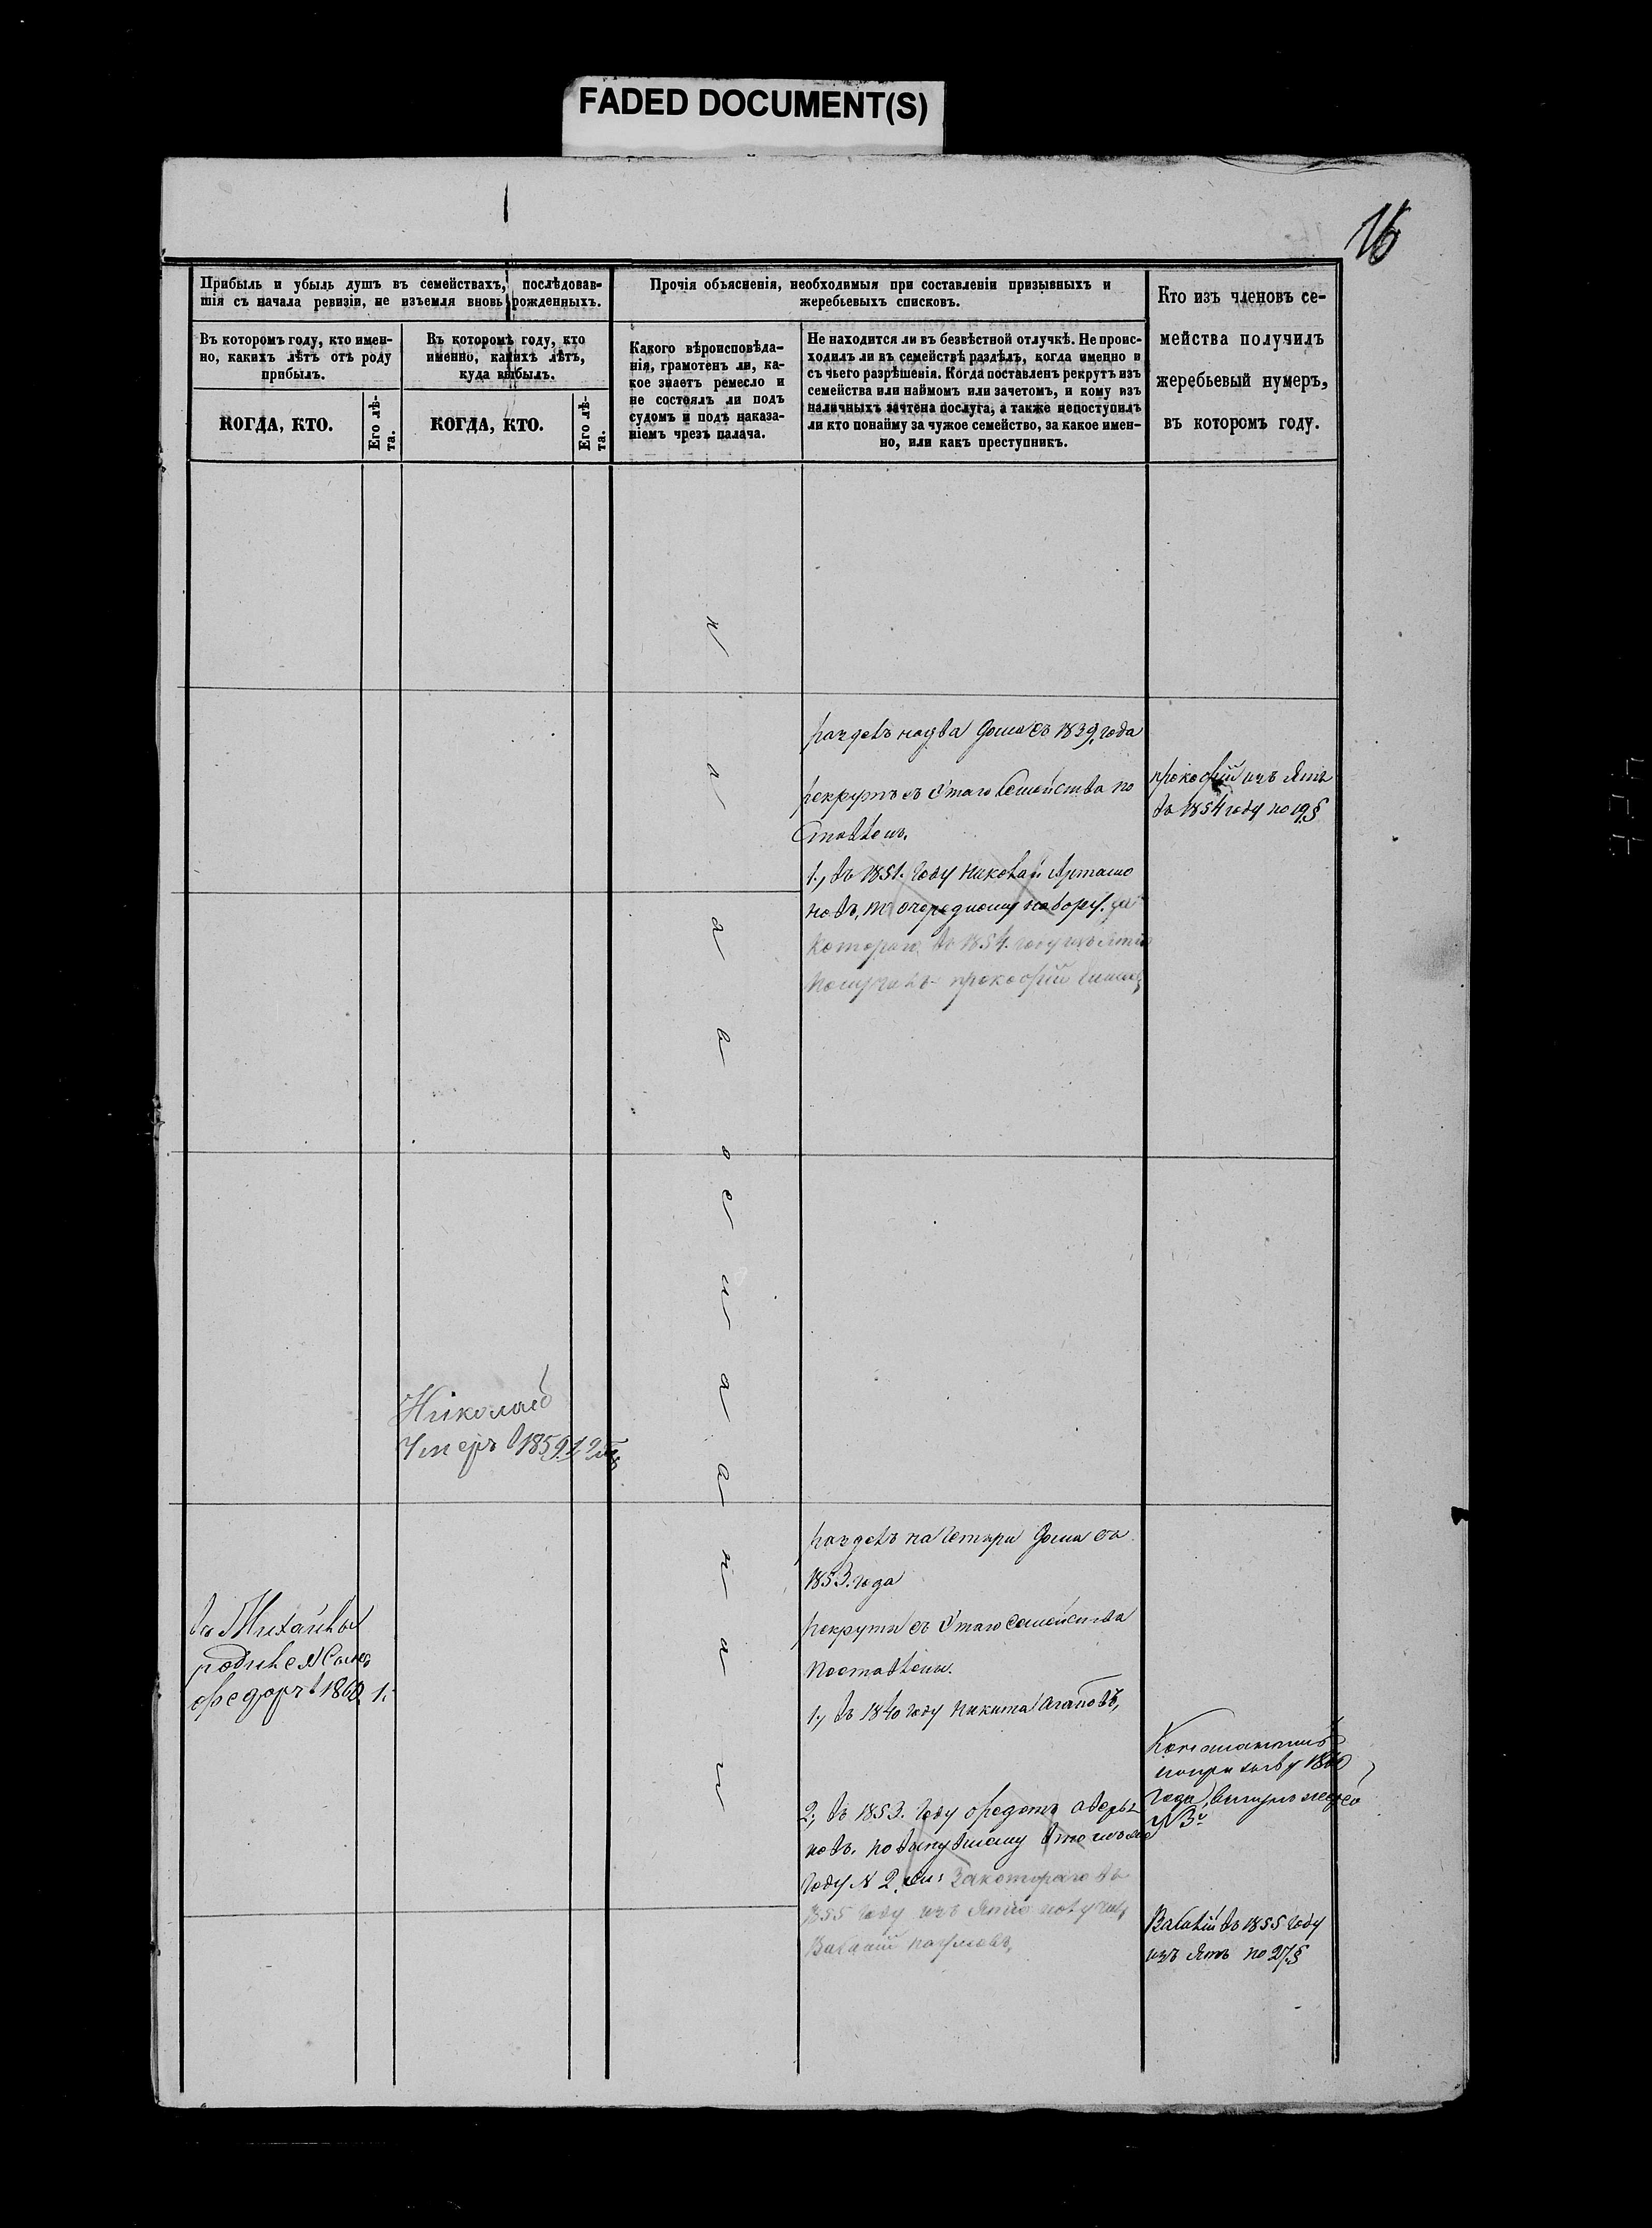 FADED DOCUMENT(S)
16
Прибыль и убыль душъ въ семействахъ, послѣдовав-
шія съ начала ревизіи, не изъемля вновь рожденныхъ.
Въ которомъ году, кто имен-
но, какихъ лѣтъ отъ роду
прибылъ.
КОГДА, КТО.
Его лѣ-
та.
Въ которомъ году, кто
именно, какихъ лѣтъ,
куда выбылъ.
КОГДА, КТО.
Его лѣ-
та.
Прочія объясненія, необходимыя при составленіи призывныхъ и
жеребьевыхъ списковъ.
Какого вѣроисповѣда-
нія, грамотенъ ли, ка-
кое знаетъ ремесло и
не состоялъ ли подъ
судомъ и подъ наказа-
ніемъ чрезъ палача.
Не находится ли въ безвѣстной отлучкѣ. Не проис-
ходилъ ли въ семействѣ раздѣлъ, когда именно и
съ чьего разрѣшенія. Когда поставленъ рекрутъ изъ
семейства или наймомъ или зачетомъ, и кому изъ
наличныхъ зачтена послуга, а также непоступилъ
ли кто понайму за чужое семейство, за какое имен-
но, или какъ преступникъ.
Кто изъ членовъ се-
мейства получилъ
жеребьевый нумеръ,
въ которомъ году.
раздѣлъ надва дома съ 1839, года
рекрутъ съ этаго Семейства по
ставленъ.
1., въ 1851. году Николай Артамо
новъ, по очередному набору. за
котораго, въ 1854. году изъятіе
получилъ прокофій
прокофій изъ ятъ
въ 1854 году по 19,§
Николай
Умеръ в 1859. 12
раздѣлъ на четыри дома съ
1853. года
рекруты съ этаго Семейства
поставлены.
1., въ 1840 году Никита Агаповъ,
2., въ 1853. году федотъ аверья
новъ. по вынутому в томъ же
году № 2, за котораго въ
1855 году изъ ятіе получилъ
въ Михайлы
родился Сынъ
федоръ в 1860 1.
Константинъ
по призыву 1860
года, вынулъ жереб
№ 3й
въ 1855 году
изъ ятъ по 27,§